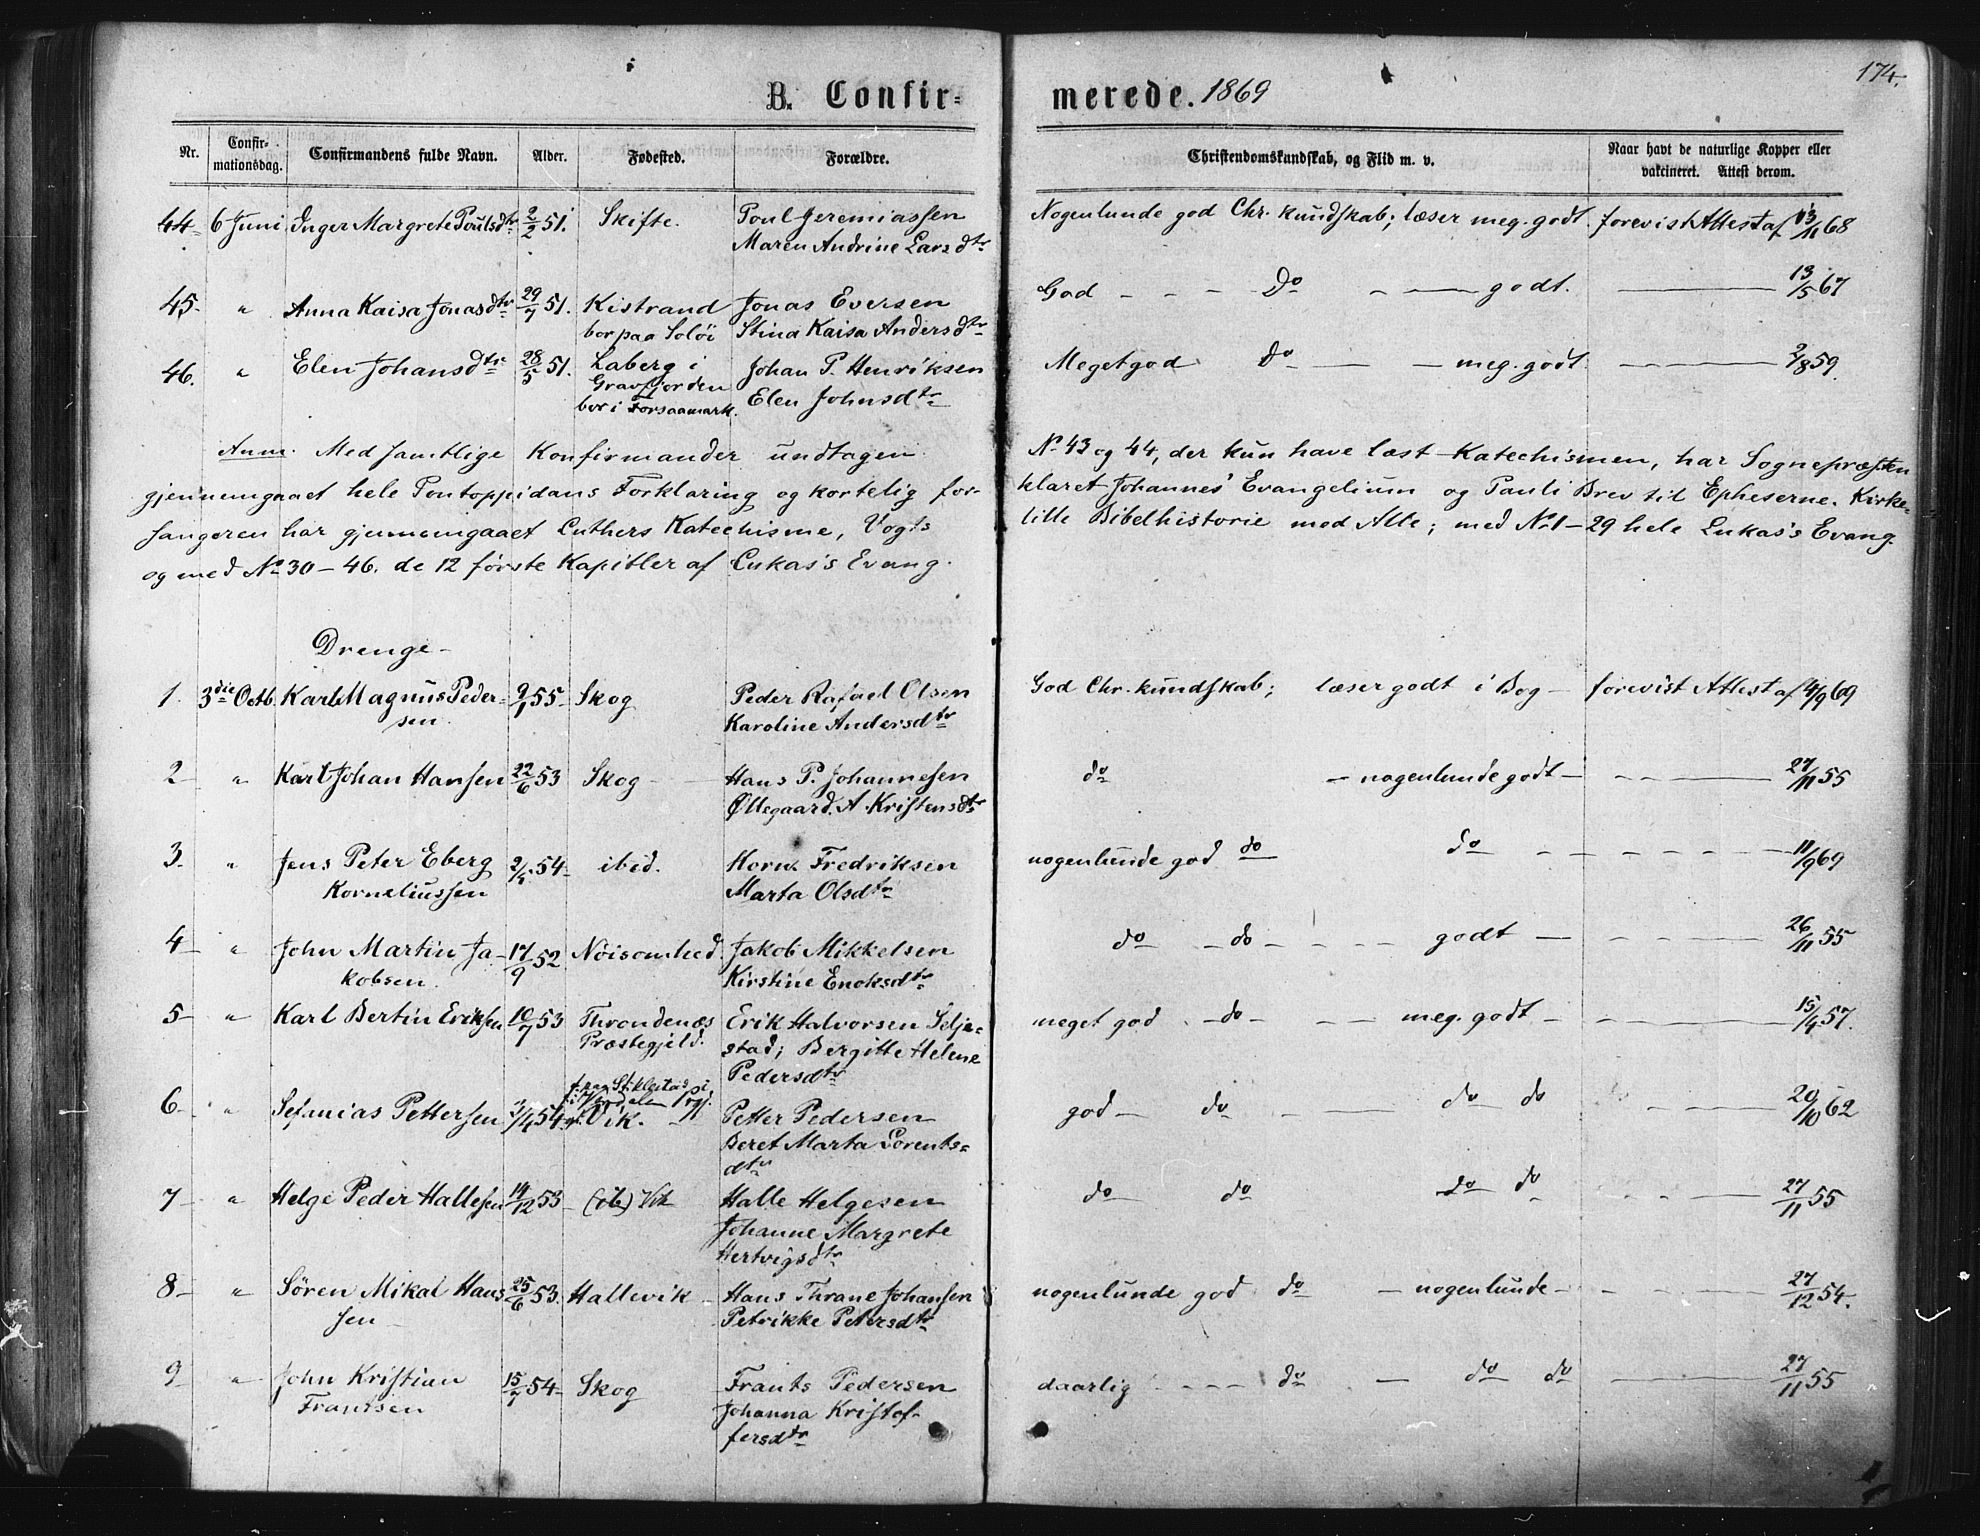 174.
B. Confir-merede. 1869
Nr. Confir-mationsdag. Confirmandens fulde Navn. Alder. Fødested. Forældre. Christendomskundskab, og Flid m. v. Naar havt de naturlige Kopper eller vakcineret. Attest derom.
44. 6 Juni Inger Margrete Poulsdtr 2/2 51. Skifte. Poul Jeremiassen Nogenlunde god Chr. kundskab; læser meg. godt. forevist Attest af 13/11 68
Maren Andrine Larsdtr
45. " Anna Kaisa Jonasdtr 29/7 51. Kistrand Jonas Eversen God - - - Do - - godt. 13/5 67
bor paa Soløi Stina Kaisa Andersdtr
46. " Elen Johansdtr 28/5 51. Laberg i Johan P. Henriksen Meget god Do - - meg. godt. 2/8 59.
Gravfjorden Elen Johnsdtr
bor i Forsaamark.
Anm. Med samtlige Konfirmander undtagen No 43 og 44, der kun have læst Katechismen, har Sognepræsten
gjennemgaaet hele Pontoppidans Forklaring og kortelig for-klaret Johannes' Evangelium og Pauli Brev til Epheserne. Kirke-
sangeren har gjennemgaaet Luthers Katechisme, Vogts lille Bibelhistorie med Alle; med No 1-29 hele Lukas's Evang.
og med No 30-46. de 12 første Kapitler af Lukas's Evang.
Drenge-
1. 3die Octb. Karl Magnus Peder- 9/1 55 Skog Peder Rafael Olsen God Chr. kundskab; læser godt i Bog - forevist Attest af 4/9 69
sen. Karoline Andersdtr
2 " Karl Johan Hansen 22/6 53 Skog Hans P. Johannesen do - nogenlunde godt - 27/11 55
Øllegaard. A. Kristensdtr
3. " Jens Peter Eberg 2/5 54 ibid. Korn. Fredriksen nogenlunde god do do 11/9 69
Korneliussen Marta Olsdtr
4 " John Martin Ja- 17/9 52 Nøisomhed Jakob Mikkelsen do - do - godt - 26/11 55
kobsen. Kirstine Enoksdtr
5 " Karl Bertin Eriksen 10/7 53 Throndenæs Erik Halvorsen Selje- meget god - do - meg. godt - 15/4 57.
Præstegjeld. stad; Bergitte Helene
Pedersdtr
6 " Sefanias Pettersen 3/4 54 Vik. Petter Pedersen god - do - do do 20/10 62
Beret Marta Lorents-
dtr
7 " Helge Peder Hallesen 14/12 53 (ib) Vik Halle Helgesen do do do do 27/11 55
Johanne Margrete
Hertvigsdtr
8 " Søren Mikal Han- 25/6 53. Hallevik Hans Thrane Johansen nogenlunde god do - nogenlunde - 27/12 54.
sen Petrikke Petersdtr
9 " John Kristian 15/7 54 Skog Frants Pedersen daarlig - do - do do 27/11 55
Frantsen Johanna Kristof-
fersdtr